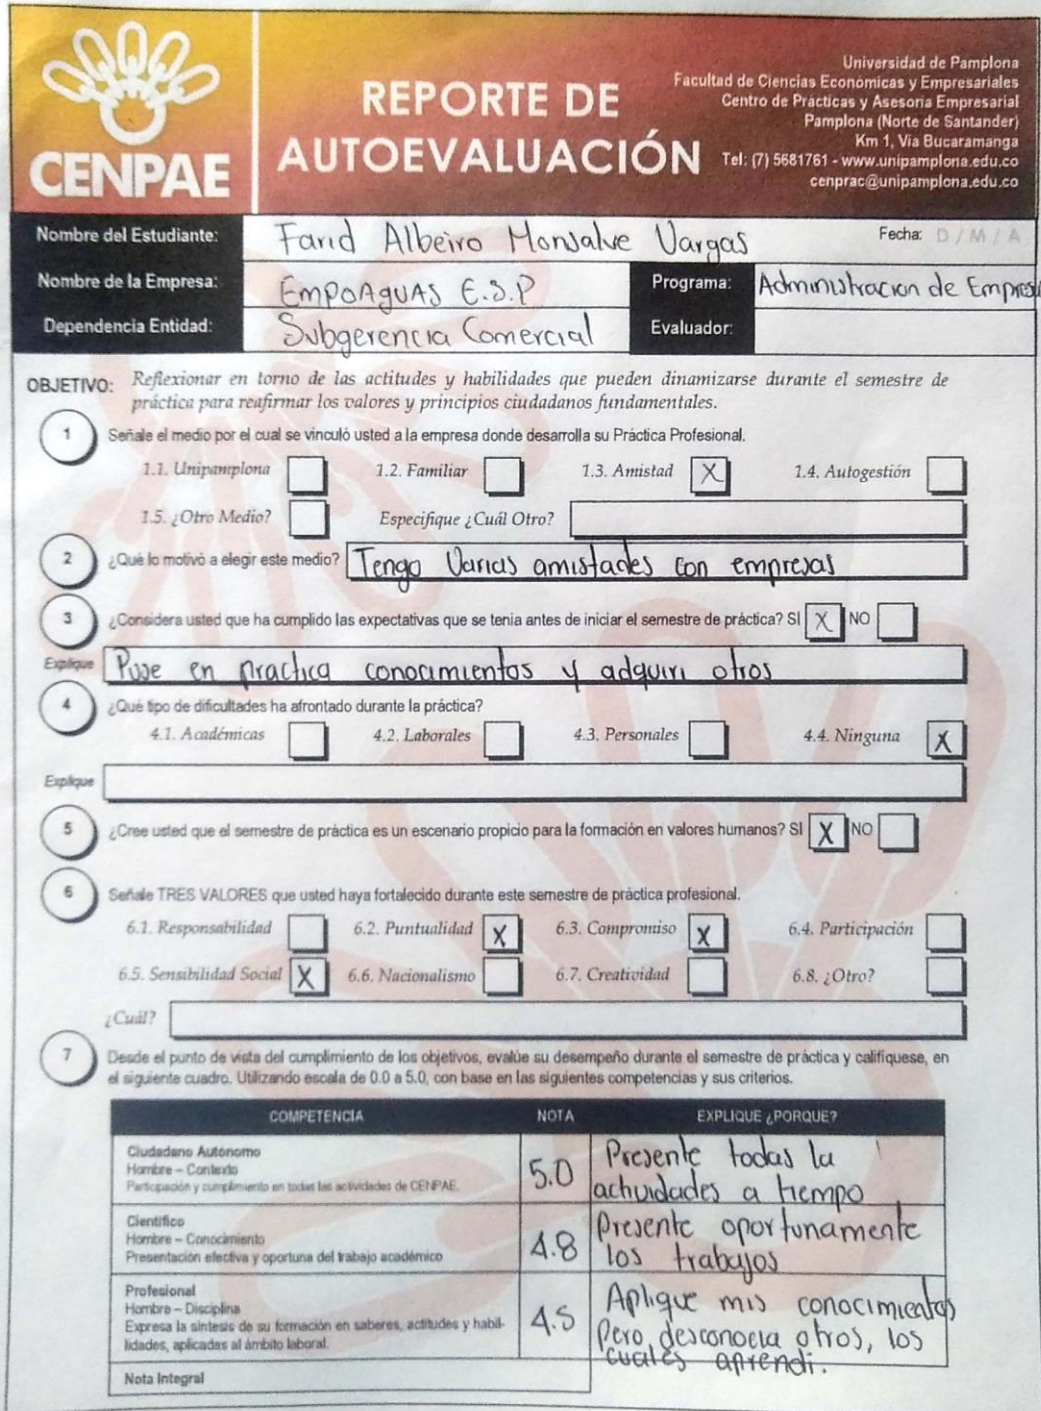 CENPAE
REPORTE DE
AUTOEVALUACIÓN
Universidad de Pamplona
Facultad de Ciencias Económicas y Empresariales
Centro de Prácticas y Asesoria Empresarial
Pamplona (Norte de Santander)
Km 1, Via Bucaramanga
Tel: (7) 5681761 - www.unipamplona.edu.co
cenprac@unipamplona.edu.co
Nombre del Estudiante: Farid Albeiro Monsalve Vargas Fecha: D / M / A
Nombre de la Empresa: EMPOAGUAS E.S.P Programa: Administracion de Empresa
Dependencia Entidad: Subgerencia Comercial Evaluador:
OBJETIVO: Reflexionar en torno de las actitudes y habilidades que pueden dinamizarse durante el semestre de
práctica para reafirmar los valores y principios ciudadanos fundamentales.
1 Señale el medio por el cual se vinculó usted a la empresa donde desarrolla su Práctica Profesional.
1.1. Unipamplona 1.2. Familiar 1.3. Amistad X 1.4. Autogestión
1.5. ¿Otro Medio? Especifique ¿Cuál Otro?
2 ¿Qué lo motivó a elegir este medio? Tengo Varias amistades con empresas
3 ¿Considera usted que ha cumplido las expectativas que se tenia antes de iniciar el semestre de práctica? SI X NO
Explique Puse en practica conocimientos y adquiri otros
4 ¿Qué tipo de dificultades ha afrontado durante la práctica?
4.1. Académicas 4.2. Laborales 4.3. Personales 4.4. Ninguna X
Explique
5 ¿Cree usted que el semestre de práctica es un escenario propicio para la formación en valores humanos? SI X NO
6 Señale TRES VALORES que usted haya fortalecido durante este semestre de práctica profesional.
6.1. Responsabilidad 6.2. Puntualidad X 6.3. Compromiso X 6.4. Participación
6.5. Sensibilidad Social X 6.6. Nacionalismo 6.7. Creatividad 6.8. ¿Otro?
¿Cuál?
7 Desde el punto de vista del cumplimiento de los objetivos, evalúe su desempeño durante el semestre de práctica y califíquese, en
el siguiente cuadro. Utilizando escala de 0.0 a 5.0, con base en las siguientes competencias y sus criterios.
COMPETENCIA NOTA EXPLIQUE ¿PORQUE?
Ciudadano Autónomo
Hombre – Contexto
Participación y cumplimiento en todas las actividades de CENPAE.
5.0
Presente todas la
actividades a tiempo
Científico
Hombre – Conocimiento
Presentación efectiva y oportuna del trabajo académico
4.8
Presente oportunamente
los trabajos
Profesional
Hombre – Disciplina
Expresa la síntesis de su formación en saberes, actitudes y habil-
lidades, aplicadas al ámbito laboral.
4.5
Aplique mis conocimientos
Pero desconocia otros, los
cuales aprendi.
Nota Integral